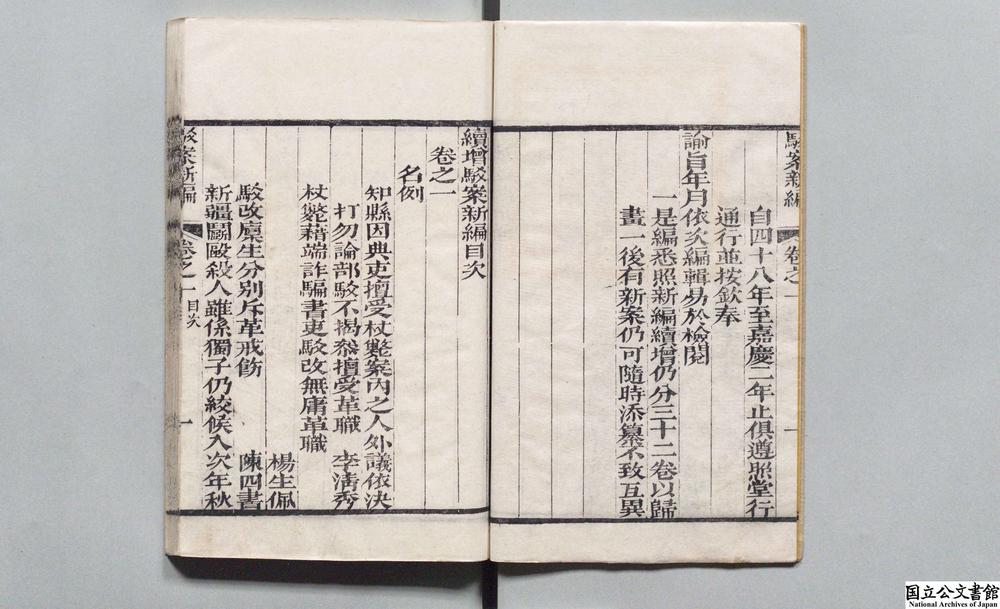 駁案新編
卷之一
一
自四十八年至嘉慶二年止俱遵照堂行
通行並按欽奉
諭旨年月依次編輯易於檢閱
一是編悉照新編續增仍分三十二卷以歸
畫一後有新案仍可隨時添纂不致互異
續增駁案新編目次
卷之一
名例
知縣因典吏擅受杖斃案內之人外議依決
打勿論部駁不揭叅擅受革職 李淸秀
杖斃藉端詐騙書吏駁改無庸革職
楊生佩
駁改廩生分別斥革戒飭 陳四書
新疆鬭毆殺人雖係獨子仍絞候入次年秋
駁案新編
卷之一 目次
一
国立公文書館
National Archives of Japan